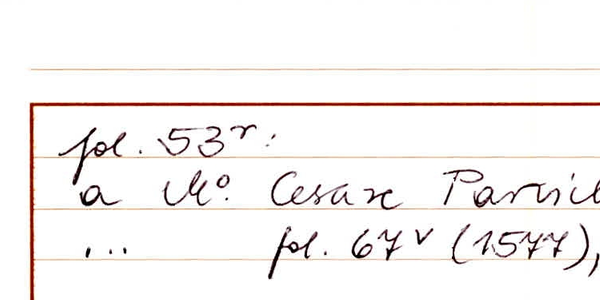 fol. 53r:
a Mo. Cesare
... fol. 67v (1577),